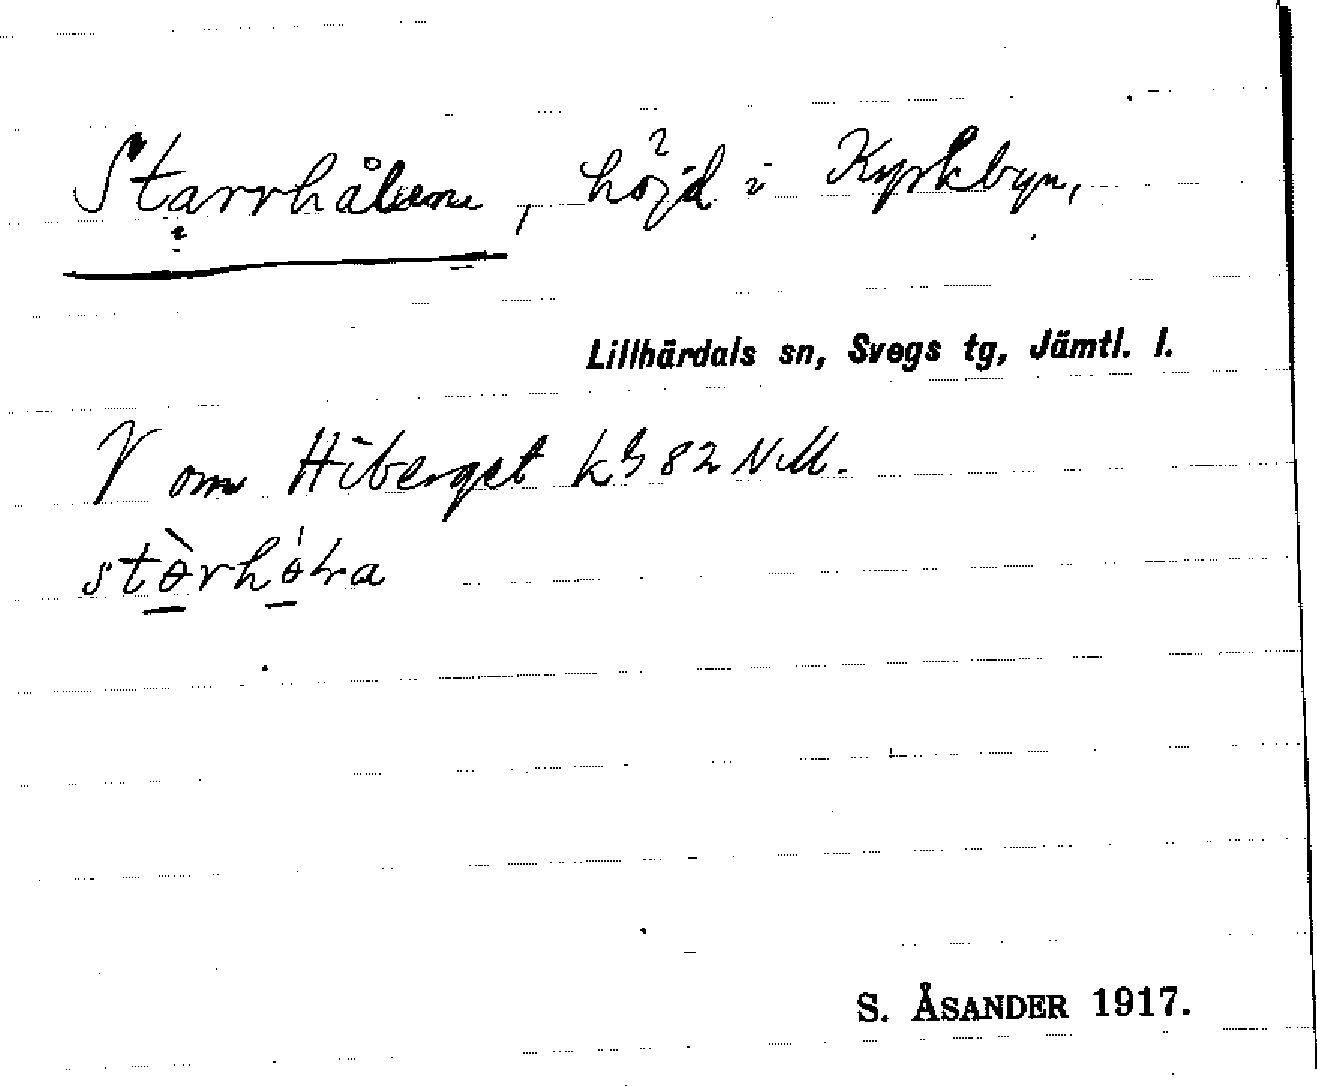 Starrhålen, höjd i Kyrkbyn,
Lillhärdals sn, Svegs tg, Jämtl. l.
V om Hiberget kb 82 NM.
S. ÅSANDER 1917.